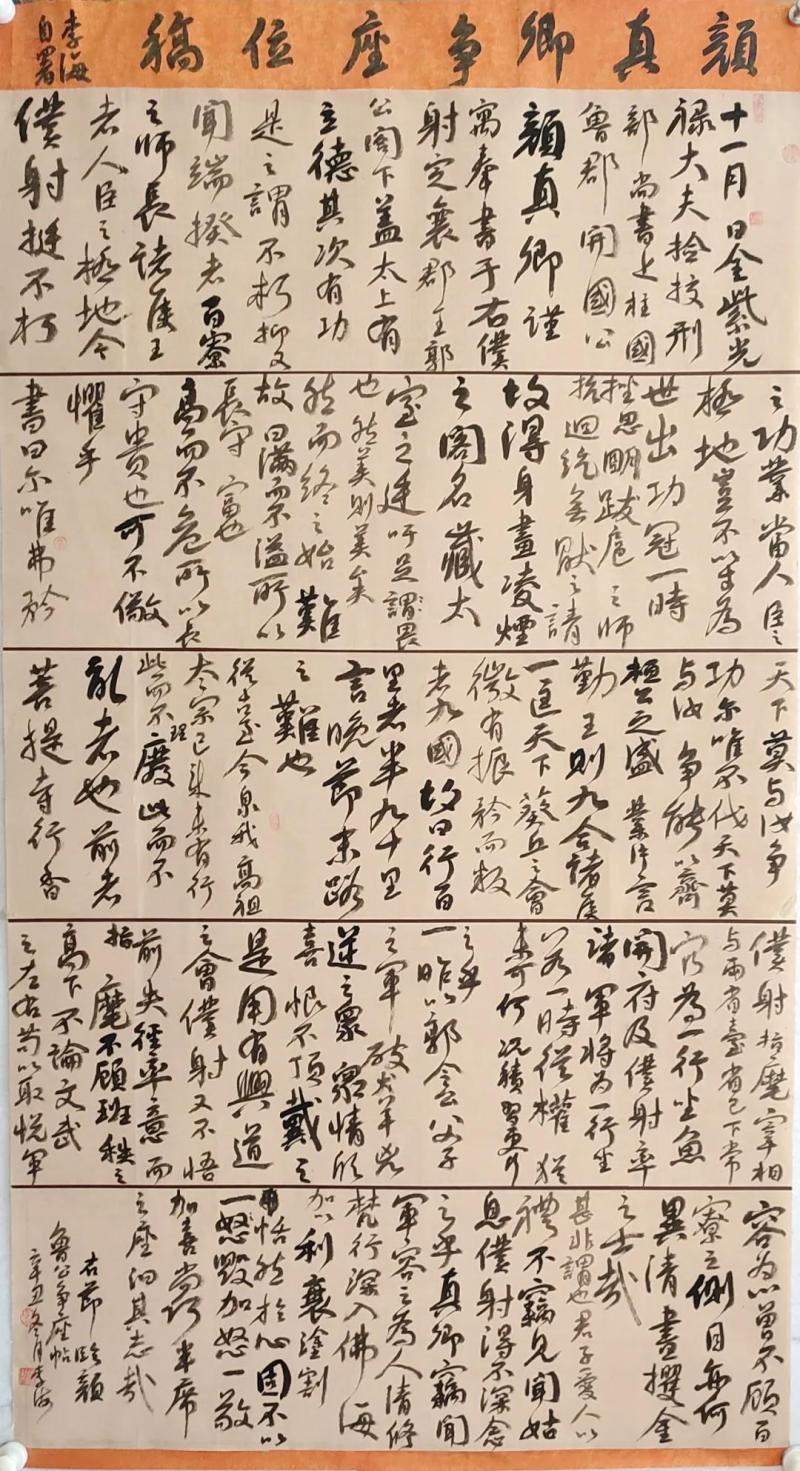 顏真卿争座位稿
李海
自署
十一月 日金紫光
祿大夫撿挍刑
部尚書上柱國
魯郡開國公
顏真卿謹
寓奉書于右僕
射定襄郡王郭
公閣下蓋太上有
立德其次有功
是之謂不朽抑又
聞端揆者百寮
之師長諸侯王
者人臣之極地今
僕射挺不朽
之功業當人臣之
極地豈不以才為
世出功冠一時
挫思明跋扈之師
抗迴紇無厭之請
故得身畫凌煙
之閣名藏太
室之廷吁足謂畏
也然美則美矣
然而終之始難
故曰滿而不溢所以
長守富也
高而不危所以長
守貴也可不儆
懼乎
書曰尔唯弗矜
天下莫与汝争
功尔唯不伐天下莫
与汝争能以齊
桓公之盛業片言
勤王則九合諸侯
一匡天下葵丘之會
微有振矜而叛
者九國故曰行百
里者半九十里
言晚節末路
之難也
從古至今泉我高祖
太宗已來未有行
此而不理廢此而不
亂者也前者
菩提寺行香
僕射指麾宰相
与兩省臺省已下常
官為一行坐魚
開府及僕射率
諸軍将为一行坐
若一時從權猶
未可何況積習更行
之乎
一昨以郭令公父子
之軍破犬羊兇
逆之衆衆情欣
喜恨不頂戴之
是用有興道
之會僕射又不悟
前失徑率意而
指麾不顧班秩之
高下不論文武
之左右苟以取悅軍
容為心曾不顧百
寮之側目亦何
異清晝攫金
之士哉
甚非謂也君子愛人以
禮不竊見聞姑
息僕射得不深念
之乎真卿竊聞
軍容之為人清修
梵行深入佛海
加以利衰塗割
恬然於心固不以
一怒毀加怒一敬
加喜尚何半席
之座汩其志哉
右節臨顏
魯公争座帖
辛丑冬月李海